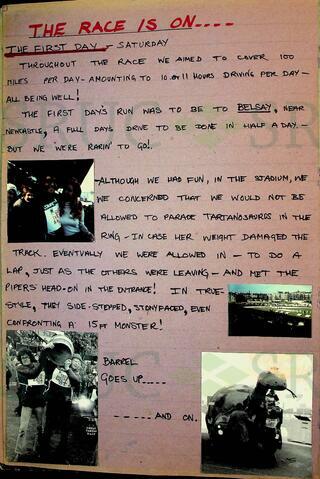 THE RACE IS ON----
THE FIRST DAY - SATURDAY
THROUGHOUT THE RACE WE AIMED TO COVER 100
MILES PER DAY - AMOUNTING TO 10 or 11 HOURS DRIVING PER DAY -
ALL BEING WELL!
THE FIRST DAY'S RUN WAS TO BE TO BELSAY, NEAR
NEWCASTLE, A FULL DAYS DRIVE TO BE DONE IN HALF A DAY -
BUT WE WERE RARIN' TO GO!
-ALTHOUGH WE HAD FUN, IN THE STADIUM, WE
WE CONCERNED THAT WE WOULD NOT BE
ALLOWED TO PARADE TARTANOSAURUS IN THE
RING - IN CASE HER WEIGHT DAMAGED THE
TRACK. EVENTUALLY WE WERE ALLOWED IN - TO DO A
LAP, JUST AS THE OTHERS WERE LEAVING - AND MET THE
PIPERS HEAD-ON IN THE ENTRANCE! IN TRUE-
STYLE, THEY SIDE-STEPPED, STONYFACED, EVEN
CONFRONTING A 15FT MONSTER!
BARREL
GOES UP-----
-----AND ON.